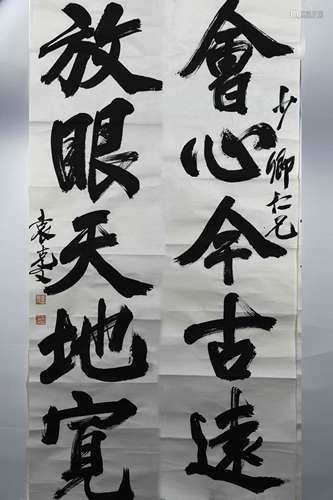 會心今古遠
少卿仁兄
放眼天地寬
袁克文